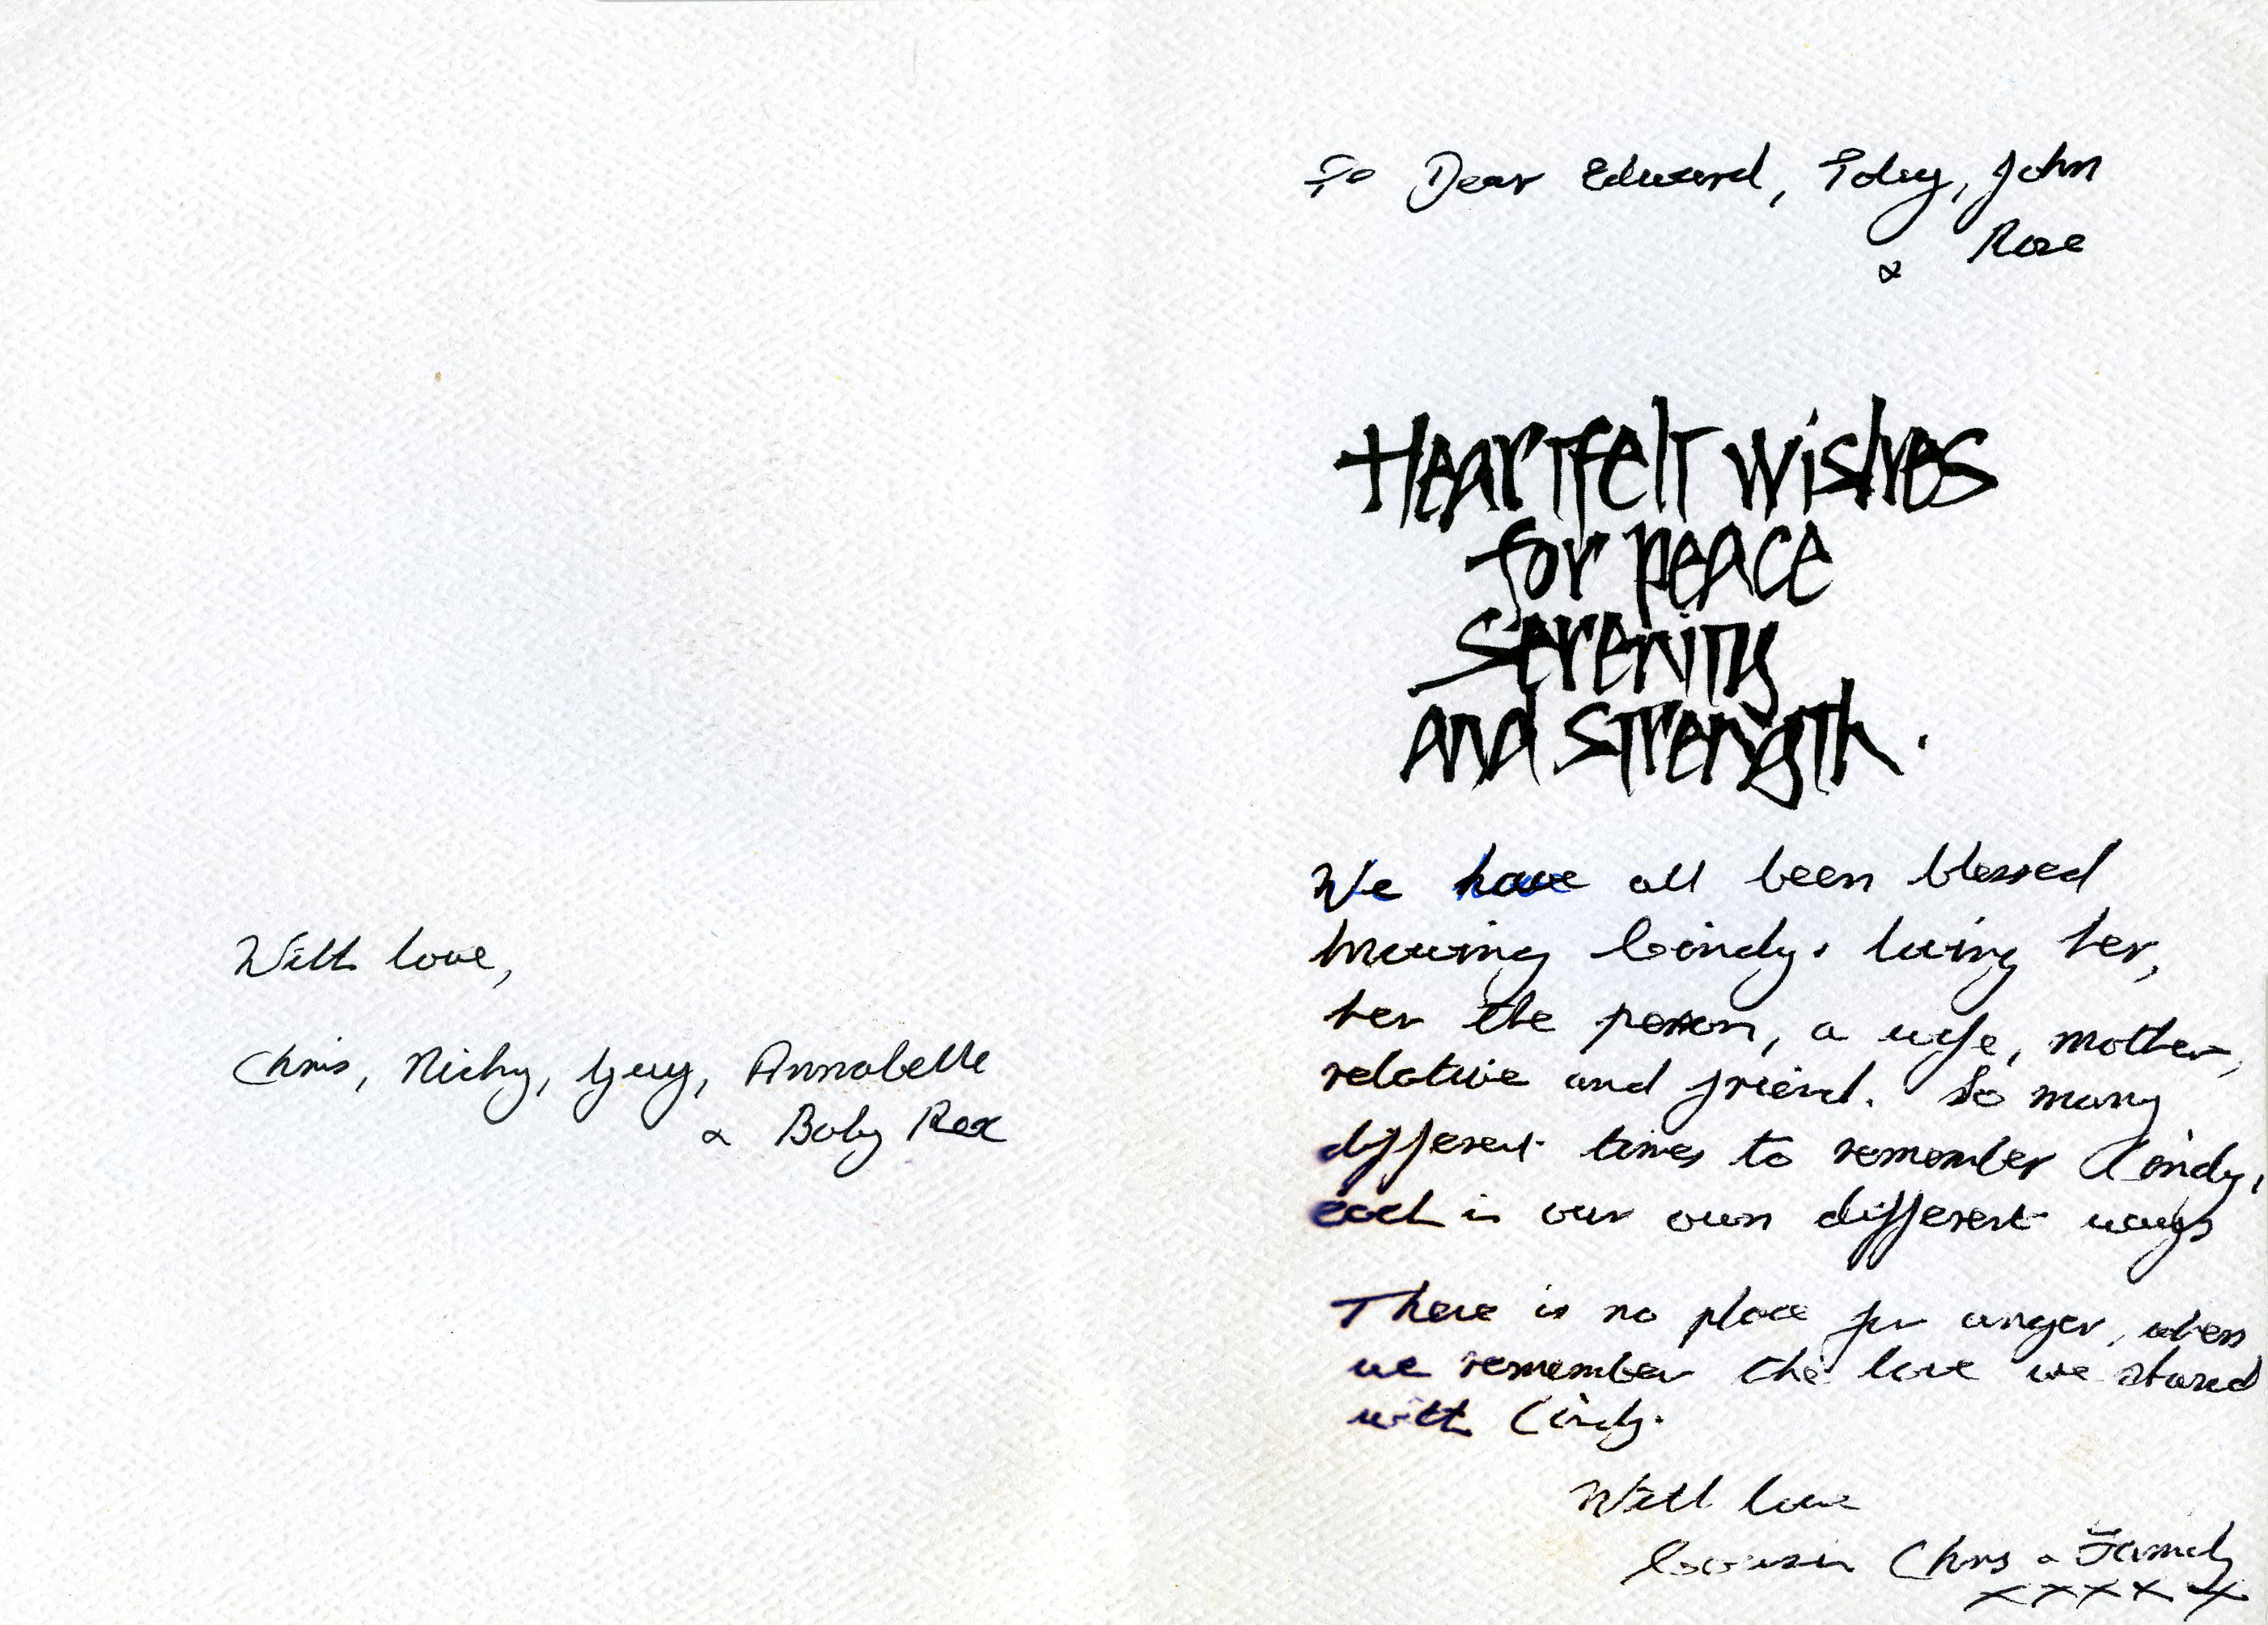 With love,
Chris, Nicky, Guy, Annabelle
& Baby Rex
To Dear Edward, Toby, John
& Rose
Heartfelt wishes
for peace
serenity
and strength.
We have all been blessed
knowing Cindy. loving her,
her the person, a wife, mother,
relative and friend. So many
different times to remember Cindy,
each in our own different ways
There is no place for anger, when
we remember the love we shared
with Cindy.
With love
Cousin Chris & Family
xxxxx